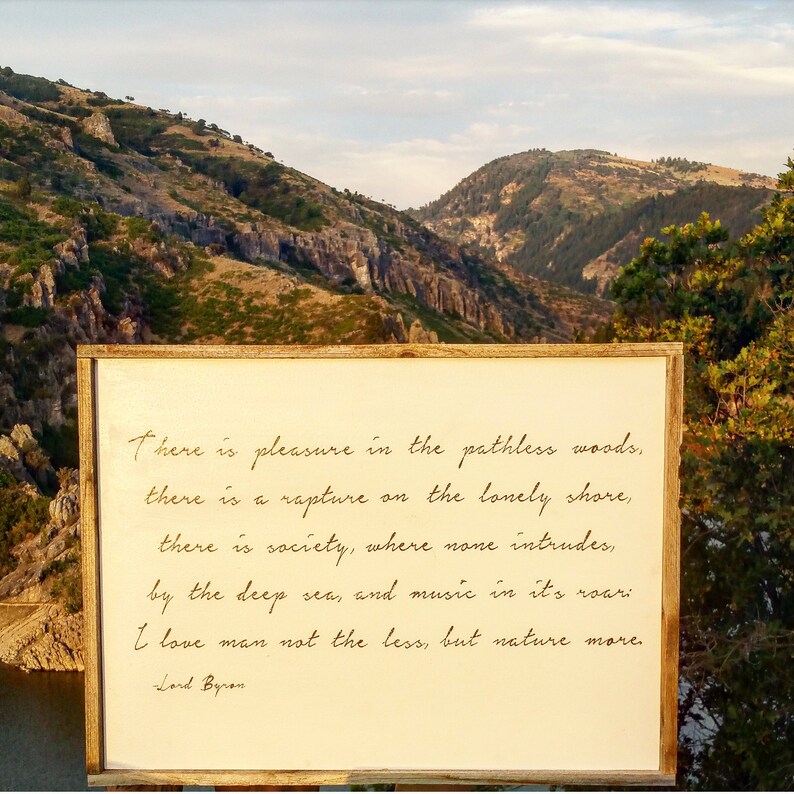 There is pleasure in the pathless woods,
there is a rapture on the lonely shore,
there is society, where none intrudes,
by the deep sea, and music in it's roar:
I love man not the less, but nature more.
-Lord Byron